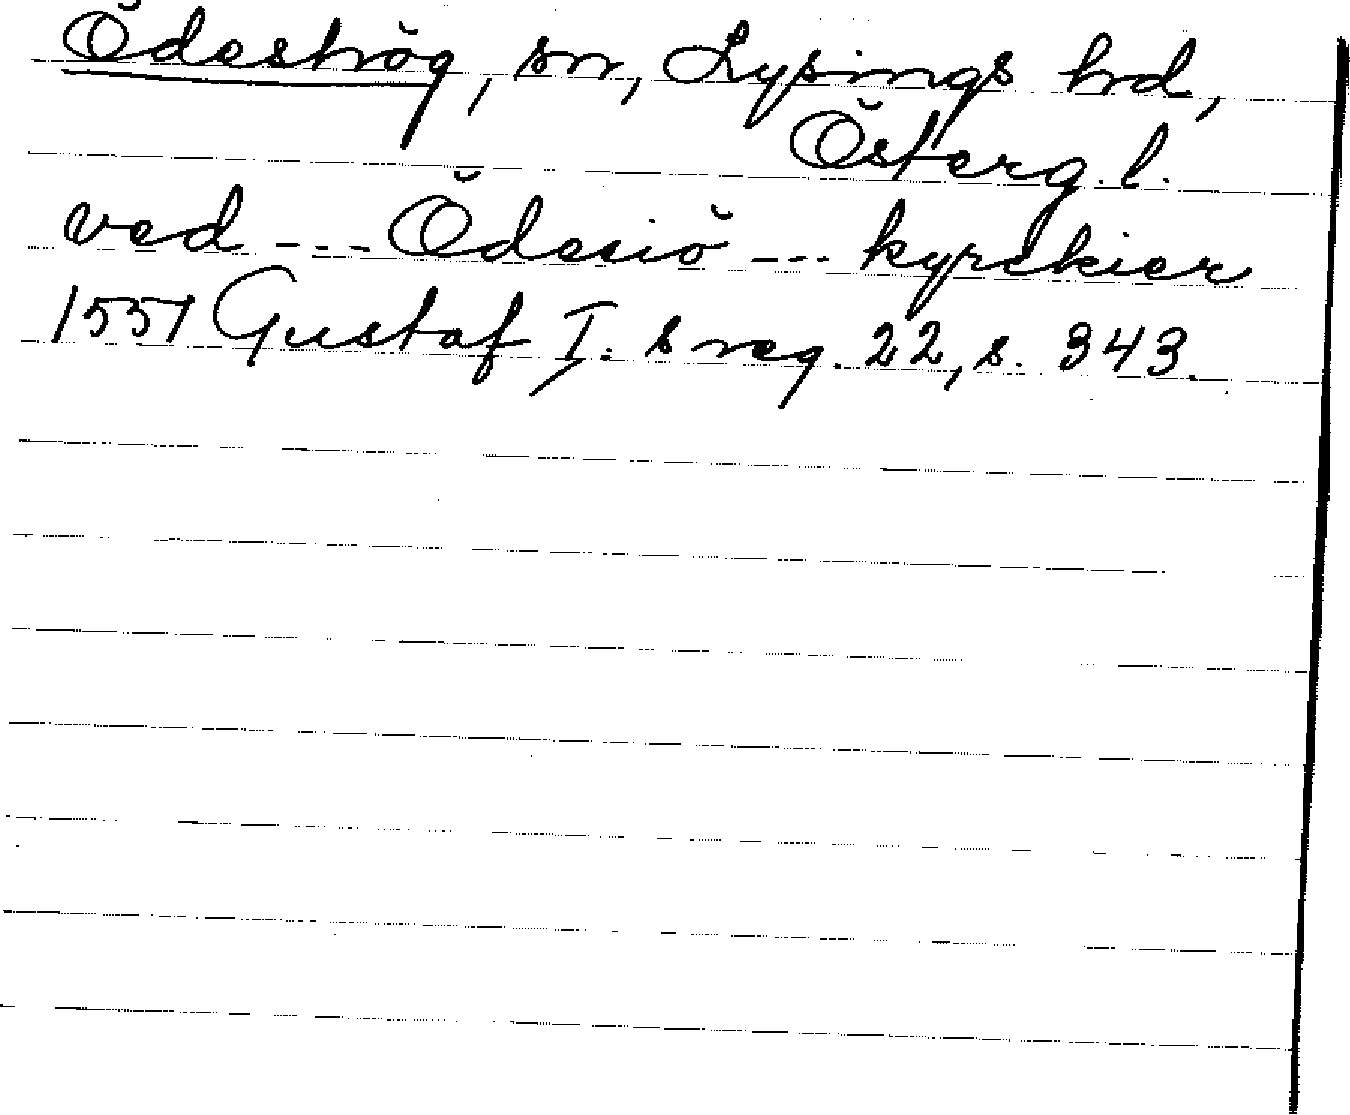 Ödeshög, sn, Lysings hd,
Österg.l.
ved --- Ödesiö --- kyrckier
1551 Gustaf I:s reg. 22, s. 343.